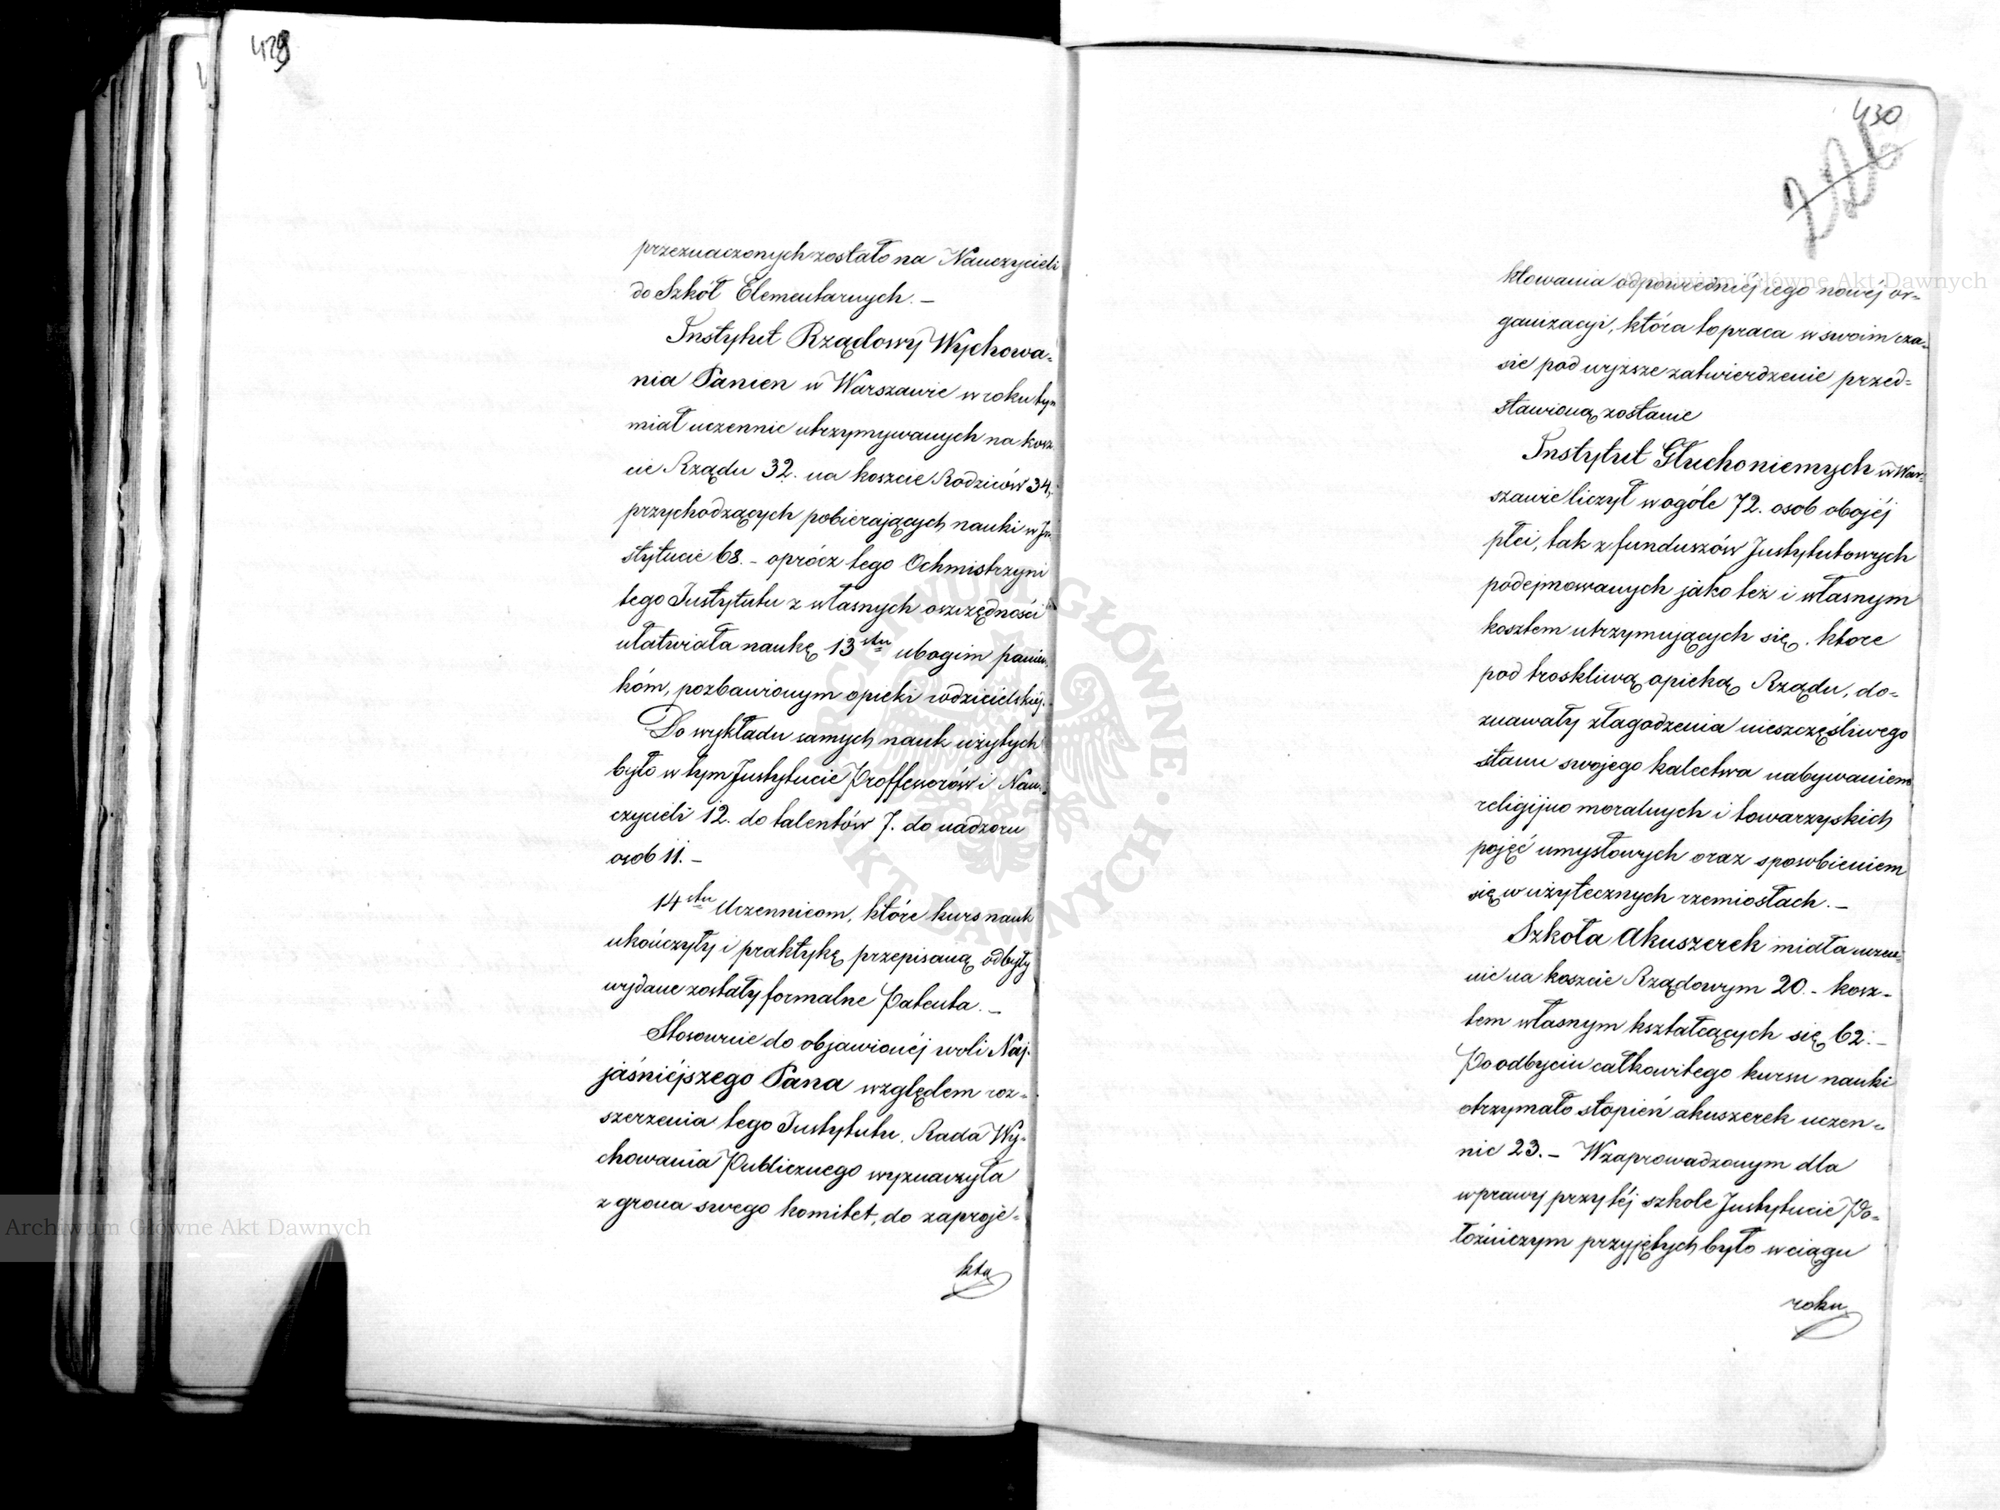 429
przeznaczonych zostało na Nauczycieli
do Szkół Elementarnych. —
Instytut Rządowy Wychowa-
nia Panien w Warszawie w roku tym
miał uczennic utrzymywanych na kosz
cie Rządu 32. na koszcie Rodziców 34,
przychodzących pobierających nauki w In
stytucie 68. — oprócz tego Ochmistrzyni
tego Instytutu z własnych oszczędności
ułatwiała naukę 13stu ubogim panien
kóm, pozbawionym opieki rodzicielskiéj. -
Do wykładu samych nauk użytych
było w tym Instytucie Professorów i Nau-
czycieli 12. do talentów 7. do nadzoru
osob 11. —
14stu Uczennicom, które kurs nauk
ukończyły i praktykę przepisaną odbyły
wydane zostały formalne Patenta. —
Stosownie do objawionéj woli Naj-
jaśniéjszego Pana względem roz-
szerzenia tego Instytutu, Rada Wy-
chowania Publicznego wyznaczyła
z grona swego komitet, do zaproje-
ktu
430
226
ktowania odpowiedniéj jego nowéj or-
ganizacyi, która to praca w swoim cza-
sie pod wyższe zatwierdzenie przed-
stawioną zostanie
Instytut Głuchoniemych w War-
szawie liczył w ogóle 72. osob obojéj
płci, tak z funduszów Instytutowych
podejmowanych jako też i własnym
kosztem utrzymujących się, ktore
pod troskliwą opieką Rządu, do-
znawały złagodzenia nieszczęśliwego
stanu swojego kalectwa nabywaniem
religijno moralnych i towarzyskich
pojęć umysłowych oraz sposobieniem
się w użytecznych rzemiosłach. —
Szkoła Akuszerek miała uczen-
nic na koszcie Rządowym 20. — kosz-
tem własnym kształcących się 62. —
Po odbyciu całkowitego kursu nauki
otrzymało stopień akuszerek uczen-
nic 23. — W zaprowadzonym dla
wprawy przy téj szkole Instytucie Po-
łożniczym przyjętych było w ciągu
roku
Archiwum Główne Akt Dawnych
Archiwum Główne Akt Dawnych
ARCHIWUM GŁÓWNE · AKT DAWNYCH ·